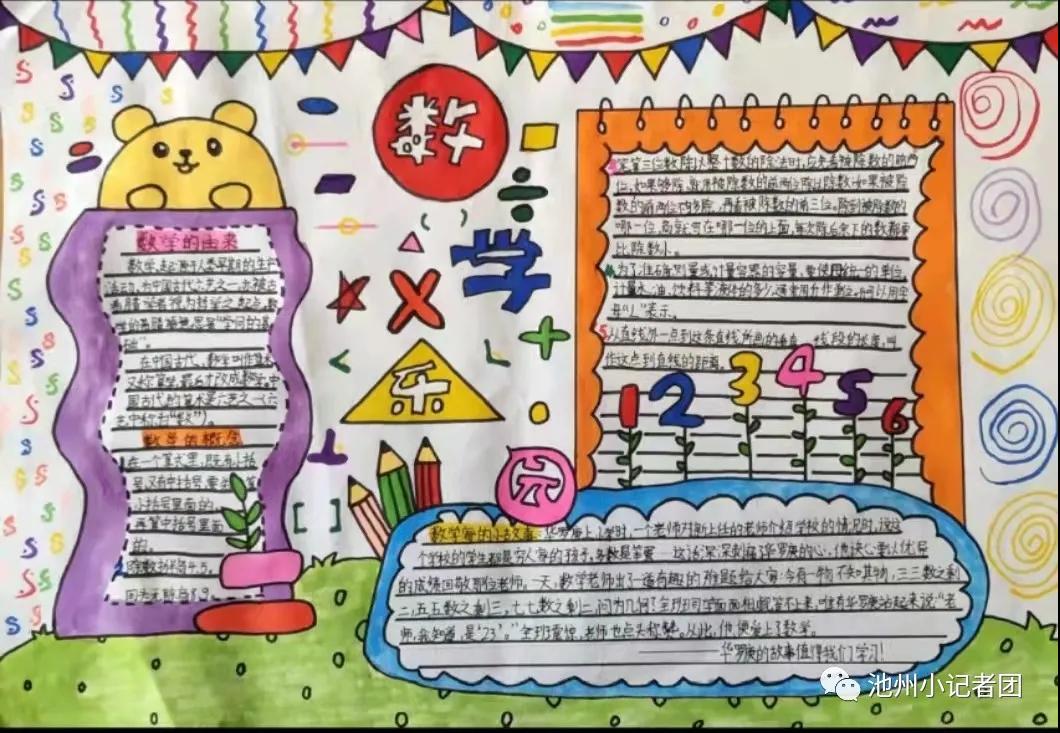 数
学
乐
园
数学的由来
数学,起源于人类早期的生产
活动,为中国古代六艺之一,亦被古
希腊学者视为哲学之起点,数
学的希腊语意思是“学问的基
础”。
在中国古代,数学叫作算术,
又称算学,最后才改成数学,中
国古代的算术是六艺之一(六
艺中称为“数”)。
数学的概念
在一个算式里,既有小括
号,又有中括号,要先算
小括号里面的,
再算中括号里面
的。
除数
四舍五
笔算三位数除以整十数的除法时,应先看被除数的前两
位,如果够除,就用被除数的前两位除以除数;如果被除
数的前两位不够除,再看被除数的前三位。除到被除数的
哪一位,商就写在哪一位的上面,每次除后余下的数都要
比除数小。
4为了准确测量或计量容器的容量,要使用统一的单位。
计量水、油、饮料等液体的多少,通常用升作单位。升可以用字
母“L”表示。
5从直线外一点到这条直线所画的垂直线段的长度,叫
作这点到直线的距离。
1 2 3 4 5 6
数学家的小故事:华罗庚上小学时,一个老师对新上任的老师介绍学校的情况时,说这
个学校的学生都是穷人家的孩子,多数是笨蛋……这话深深刺痛了华罗庚的心,他决心要以优异
的成绩回敬那位老师。一天,数学老师出了一道有趣的难题给大家:今有一物不知其物,三三数之剩
二,五五数之剩三,七七数之剩二,问为几何?全班同学面面相觑,答不上来,唯有华罗庚站起来说:“老
师,我知道,是‘23’。”全班震惊,老师也点头称赞。从此,他便爱上了数学。
————华罗庚的故事值得我们学习!
池州小记者团